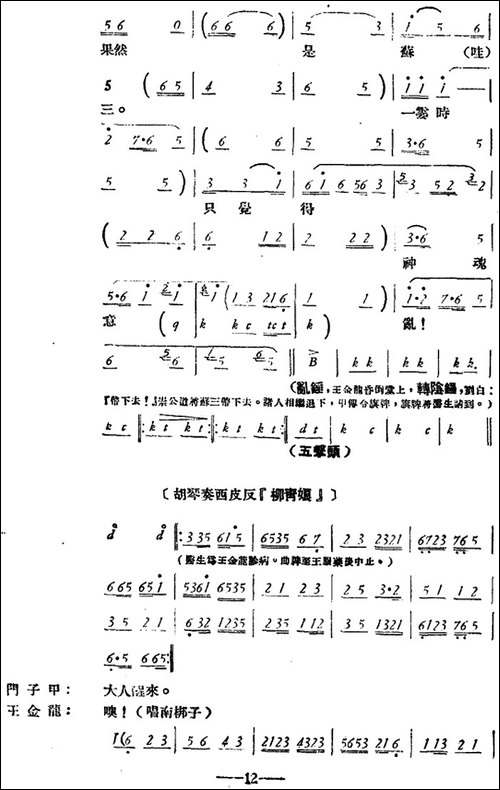 5 6 0 | (6 6 6) | 5 3 | i 5 6
果然 是 蘇 (哇)
5 (6 5 | 4 3 | 6 5) | i i i
三。 一霎時
2 7·6 5 | (6 6 | 5 5 | 3·6 5
5 5) | 3 3 i | 6 i 6 56 3 | 5 3 5 2 3 2
只覺得
(2 2 6 | 6 1 2 | 2 2 2) | 3·6 5
神魂
5·6 i 2 i | 6 i (1 3 216 | 1 1) | i·2 7·6 5
(q | k k c tc t | k) 亂！
6 5 6 | 5 6 5 | B | k k | k k | k k
(亂錘,王金龍昏倒堂上,轉陰鑼,劉白:
『帶下去！』崇公道將蘇三帶下去。諸人相繼退下,甲傳令旗牌,旗牌將醫生請到。)
k c | k t k t | k t k t | d t | k c | k c | k
(五擊頭)
〔胡琴奏西皮反『柳青娘』〕
d d | 335 615 | 6535 67 | 23 2321 | 6723 765
(醫生爲王金龍診病。曲牌至王服藥後中止。)
665 651 | 5361 6535 | 21 23 | 25 3·2 | 51 12
35 21 | 632 1235 | 235 112 | 35 1321 | 6123 765
6·5 665
門子甲： 大人醒來。
王金龍： 噢！(唱南梆子)
(6 23 | 56 43 | 2123 4323 | 5653 216 | 113 21
—12—